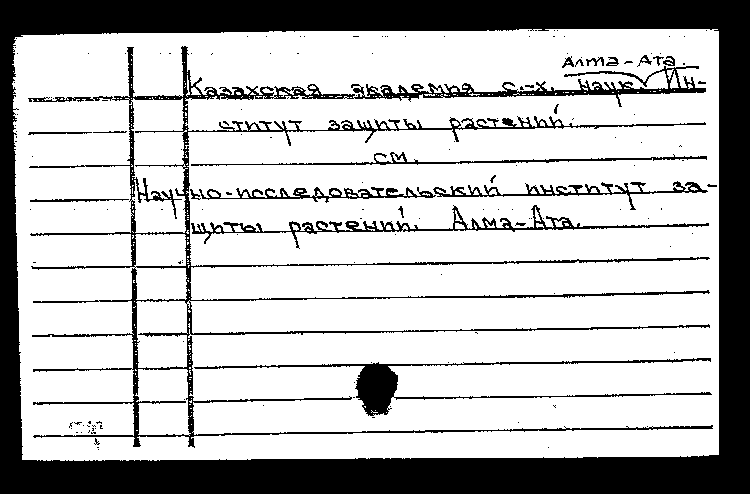 Алма-Ата.
Казахская академия с.-х. наук. Ин-
ститут защиты растений.
см.
Научно-исследовательский институт за-
щиты растений. Алма-Ата.